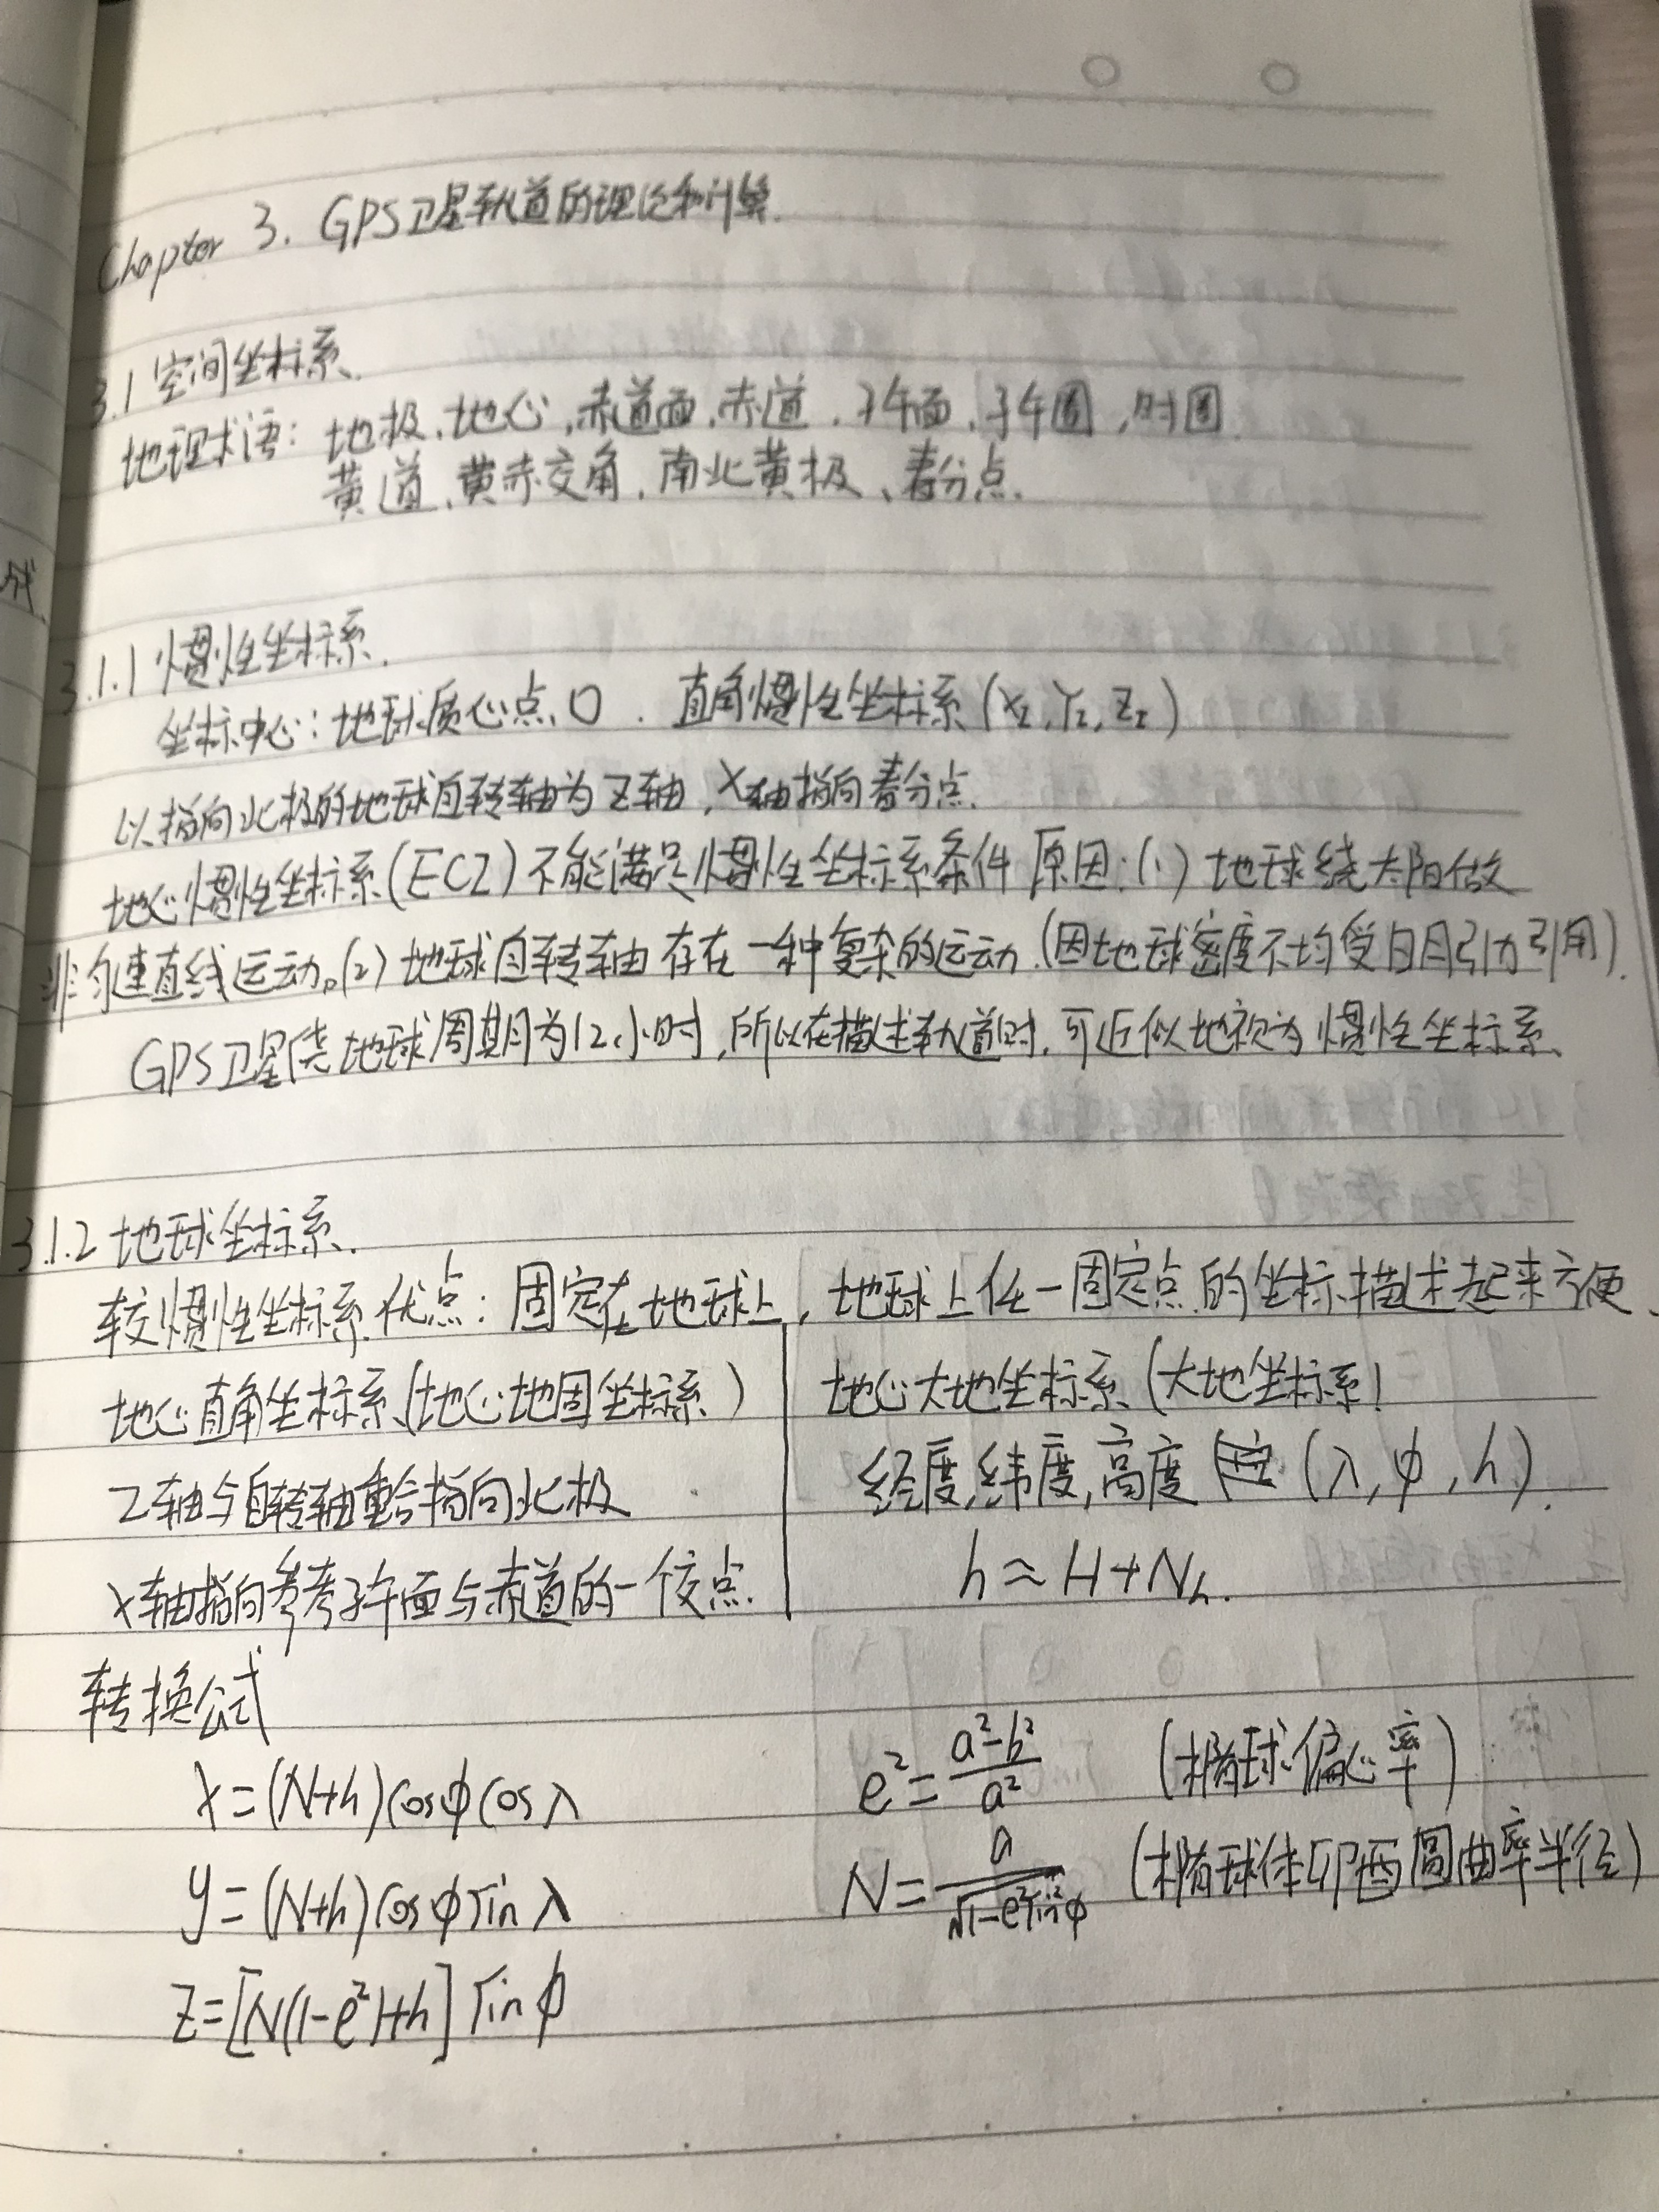 Chapter 3. GPS卫星轨道的理论和计算.
3.1 空间坐标系.
地理术语: 地极、地心,赤道面、赤道、子午面、子午圈,时圈
黄道、黄赤交角、南北黄极、春分点.
3.1.1 惯性坐标系.
坐标中心:地球质心点O. 直角惯性坐标系(X_I,Y_I,Z_I)
以指向北极的地球自转轴为Z轴,X轴指向春分点.
地心惯性坐标系(ECI)不能满足惯性坐标系条件 原因:(1) 地球绕太阳做
非匀速直线运动。(2) 地球自转轴存在一种复杂的运动.(因地球密度不均受日月引力引用).
GPS卫星绕地球周期为12小时,所以在描述轨道时,可近似地视为惯性坐标系、
3.1.2 地球坐标系.
较惯性坐标系优点:固定在地球上,地球上任一固定点的坐标描述起来方便、
地心直角坐标系(地心地固坐标系)
Z轴与自转轴重合指向北极
X轴指向参考子午面与赤道的一个交点.
地心大地坐标系(大地坐标系)
经度,纬度,高度 (λ,φ,h).
h≈H+N_h.
转换公式
x=(N+h)cosφcosλ
y=(N+h)cosφsinλ
z=[N(1-e²)+h]sinφ
e²=(a²-b²)/a² (椭球偏心率)
N=a/√(1-e²sin²φ) (椭球体卯酉圈曲率半径)